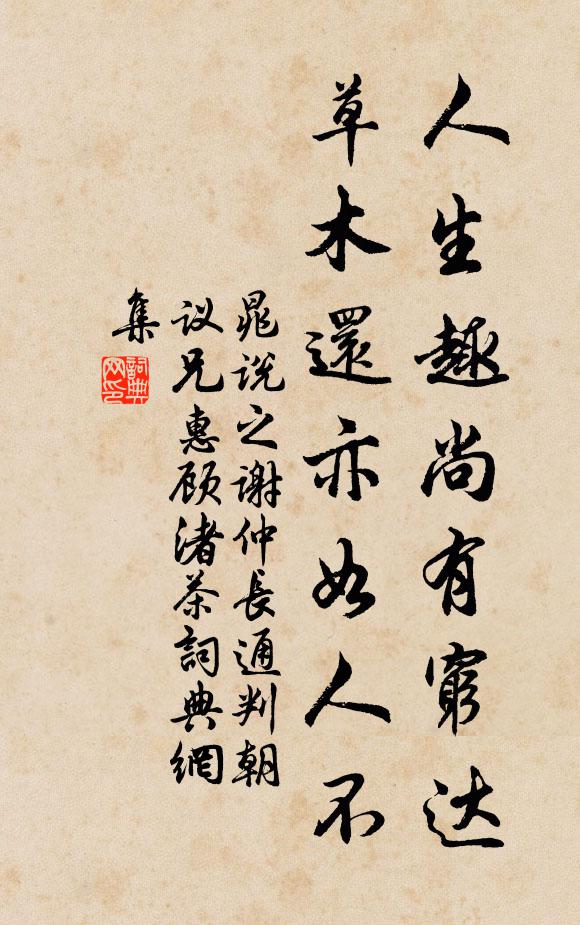 人生趣尚有窮达
草木還亦如人不
晁说之谢仲長通判朝
议兄惠顾渚茶詞典網
集
詞典
网印